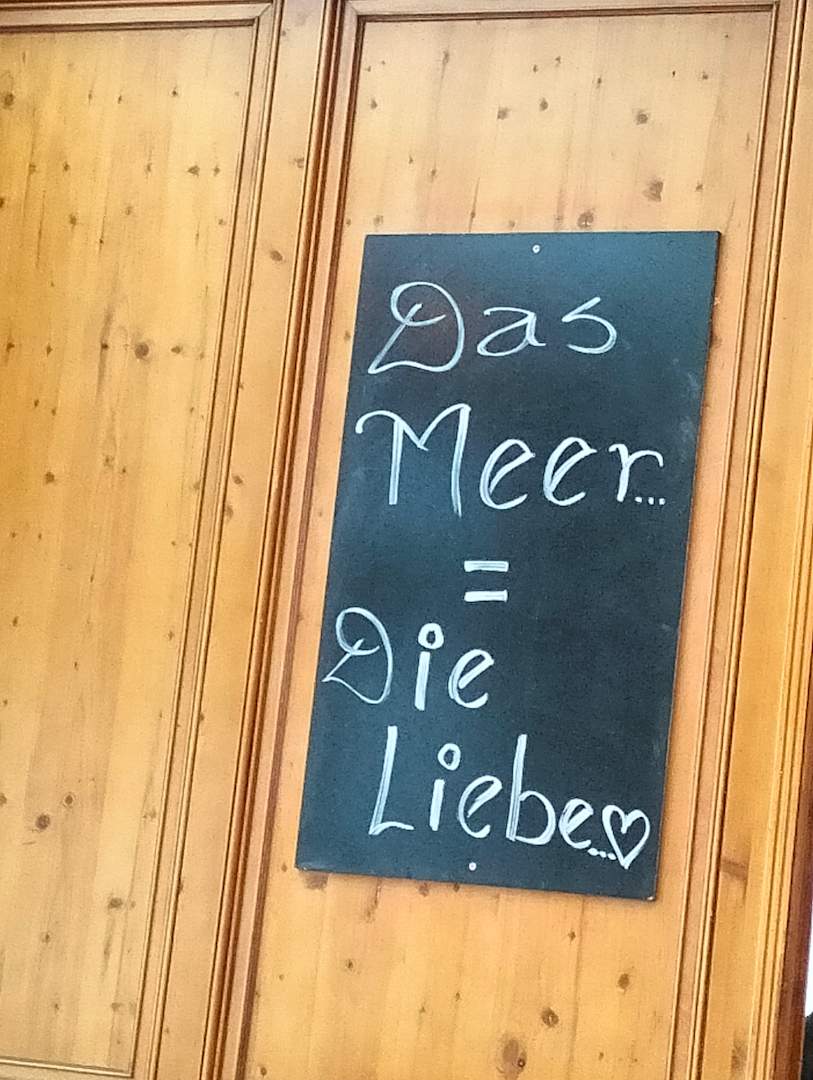 Das
Meer...
=
Die
Liebe...♡